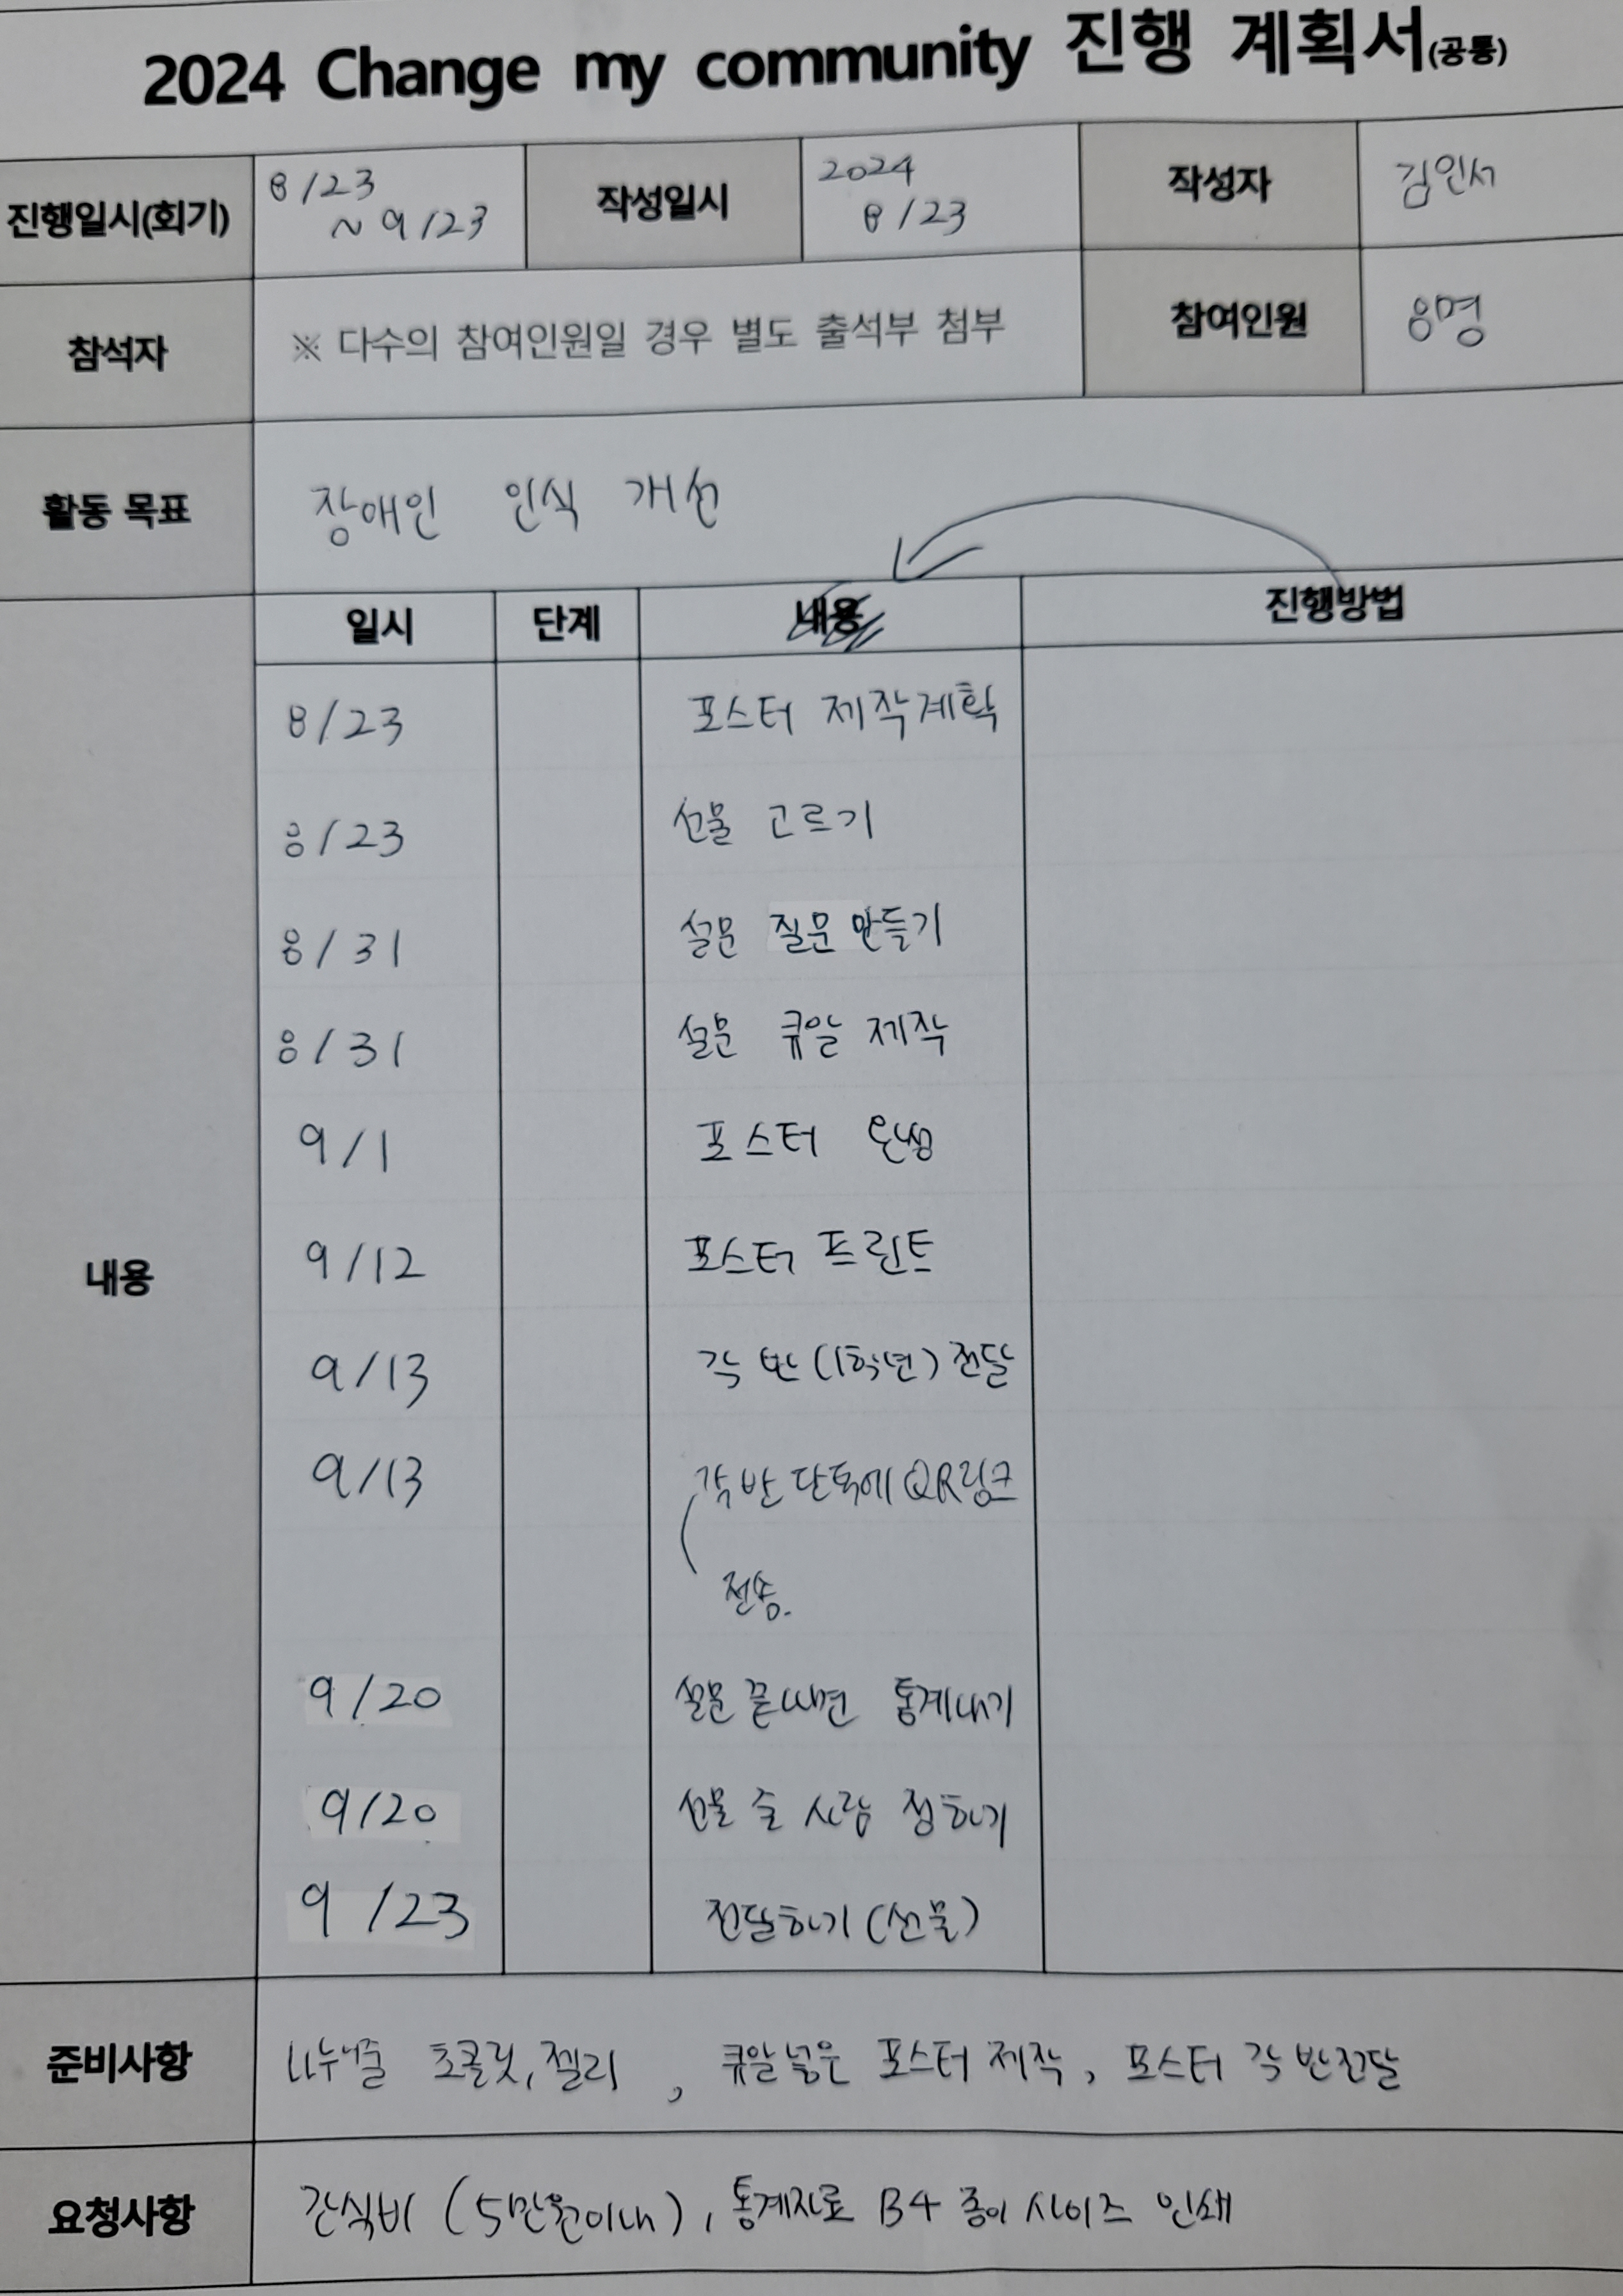 2024 Change my community 진행 계획서(공통)
진행일시(회기) 8/23 ~ 9/23 작성일시 2024 8/23 작성자 김인서
참석자 ※ 다수의 참여인원일 경우 별도 출석부 첨부 참여인원 8명
활동 목표 장애인 인식 개선
내용
일시 단계 내용 진행방법
8/23 포스터 제작계획
8/23 선물 고르기
8/31 설문 질문 만들기
8/31 설문 큐알 제작
9/1 포스터 완성
9/12 포스터 프린트
9/13 각 반(1학년) 전달
9/13 각 반 단톡에 QR링크
전송.
9/20 설문 끝나면 통계내기
9/20 선물 줄 사람 정하기
9/23 전달하기(선물)
준비사항 나눠줄 초콜릿, 젤리, 큐알 넣은 포스터 제작, 포스터 각 반 전달
요청사항 간식비 (5만원이내), 통계자료 B4 종이 사이즈 인쇄